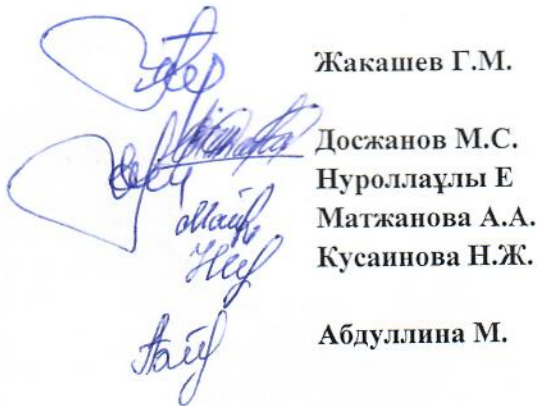 Жакашев Г.М.
Досжанов М.С.
Нуроллаұлы Е
Матжанова А.А.
Кусаинова Н.Ж.
Абдуллина М.